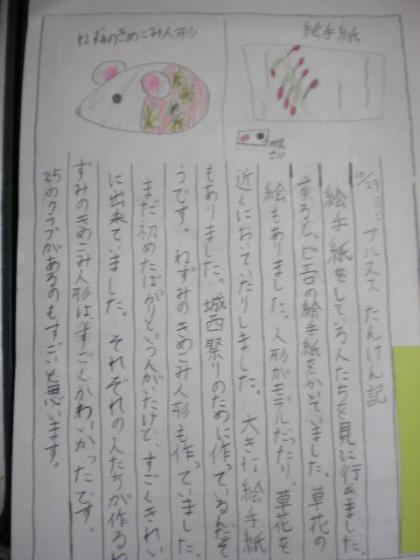 絵手紙
ねずみのきめこみ人形
10/23 アルスス たんけん記
絵手紙をしている人たちを見に行きました。
すると、ピエロの絵手紙をかいていました。草花の
絵もありました。人形がモデルだったり、草花を
近くにおいていたりしました。大きな絵手紙
もありました。城西祭りのために作っているだそ
うです。ねずみのきめこみ人形も作っていました。
まだ初めたばかりという人がいたけど、すごくきれい
に出来ていました。それぞれの人たちが作るね
ずみのきめこみ人形は、すごくかわいかったです。
25のクラブがあるのもすごいと思います。